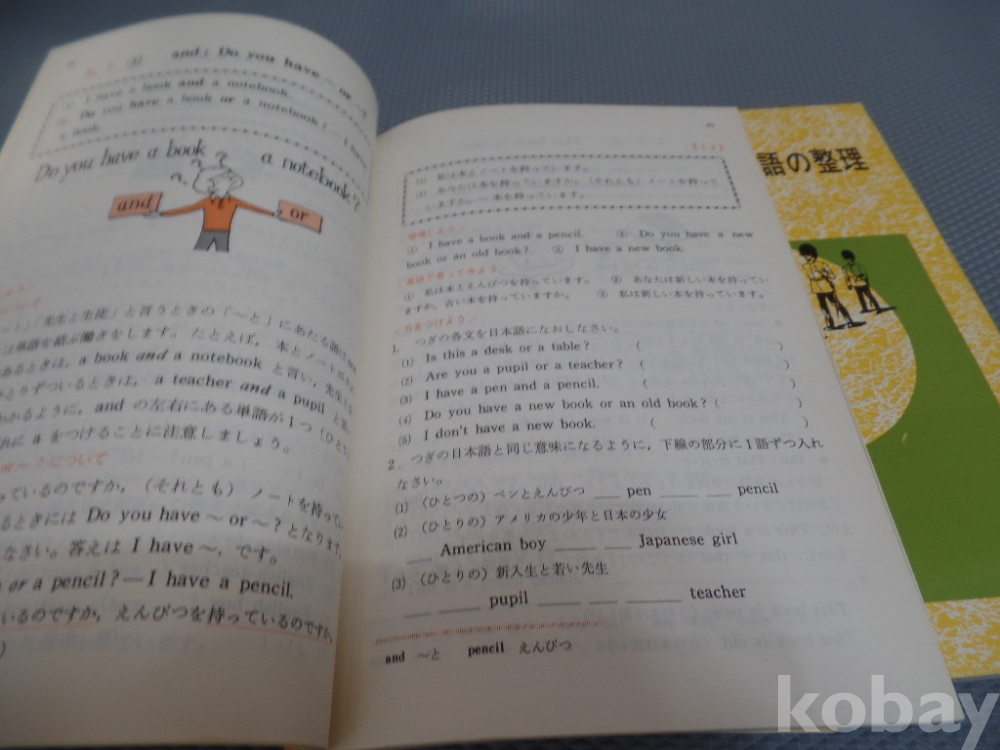 and; Do you have ～ or ～?
I have a book and a notebook.
Do you have a book or a notebook? — I have
a book.
Do you have a book
a notebook?
and
or
「先生と生徒」と言うときの「～と」にあたる語は
は単語を結ぶ働きをします。たとえば，本とノートが
あるときは，a book and a notebook と言い，先生と
とりずついるときは，a teacher and a pupil と
かるように，and の左右にある単語が1つ（ひとり
れに a をつけることに注意しましょう。
について
っているのですか，（それとも）ノートを持ってい
るときには Do you have ～ or ～? となります。
なさい。答えは I have ～，です。
or a pencil? — I have a pencil.
いるのですか，えんぴつを持っているのですか。
① 私は本とノートを持っています。
② あなたは本を持っていますか，（それとも）ノートを持って
いますか。一本を持っています。
① I have a book and a pencil. ② Do you have a new
book or an old book? ③ I have a new book.
英語で言ってみよう
① 私は本とえんぴつを持っています。 ② あなたは新しい本を持ってい
ますか，古い本を持っていますか。 ③ 私は新しい本を持っています。
力をつけよう
1. つぎの各文を日本語になおしなさい。
(1) Is this a desk or a table? ( )
(2) Are you a pupil or a teacher? ( )
(3) I have a pen and a pencil. ( )
(4) Do you have a new book or an old book? ( )
(5) I don't have a new book. ( )
2. つぎの日本語と同じ意味になるように，下線の部分に1語ずつ入れ
なさい。
(1) （ひとつの）ペンとえんぴつ ___ pen ___ ___ pencil
(2) （ひとりの）アメリカの少年と日本の少女
___ American boy ___ ___ Japanese girl
(3) （ひとりの）新入生と若い先生
___ ___ pupil ___ ___ ___ teacher
and ～と pencil えんぴつ
語の整理
kobay